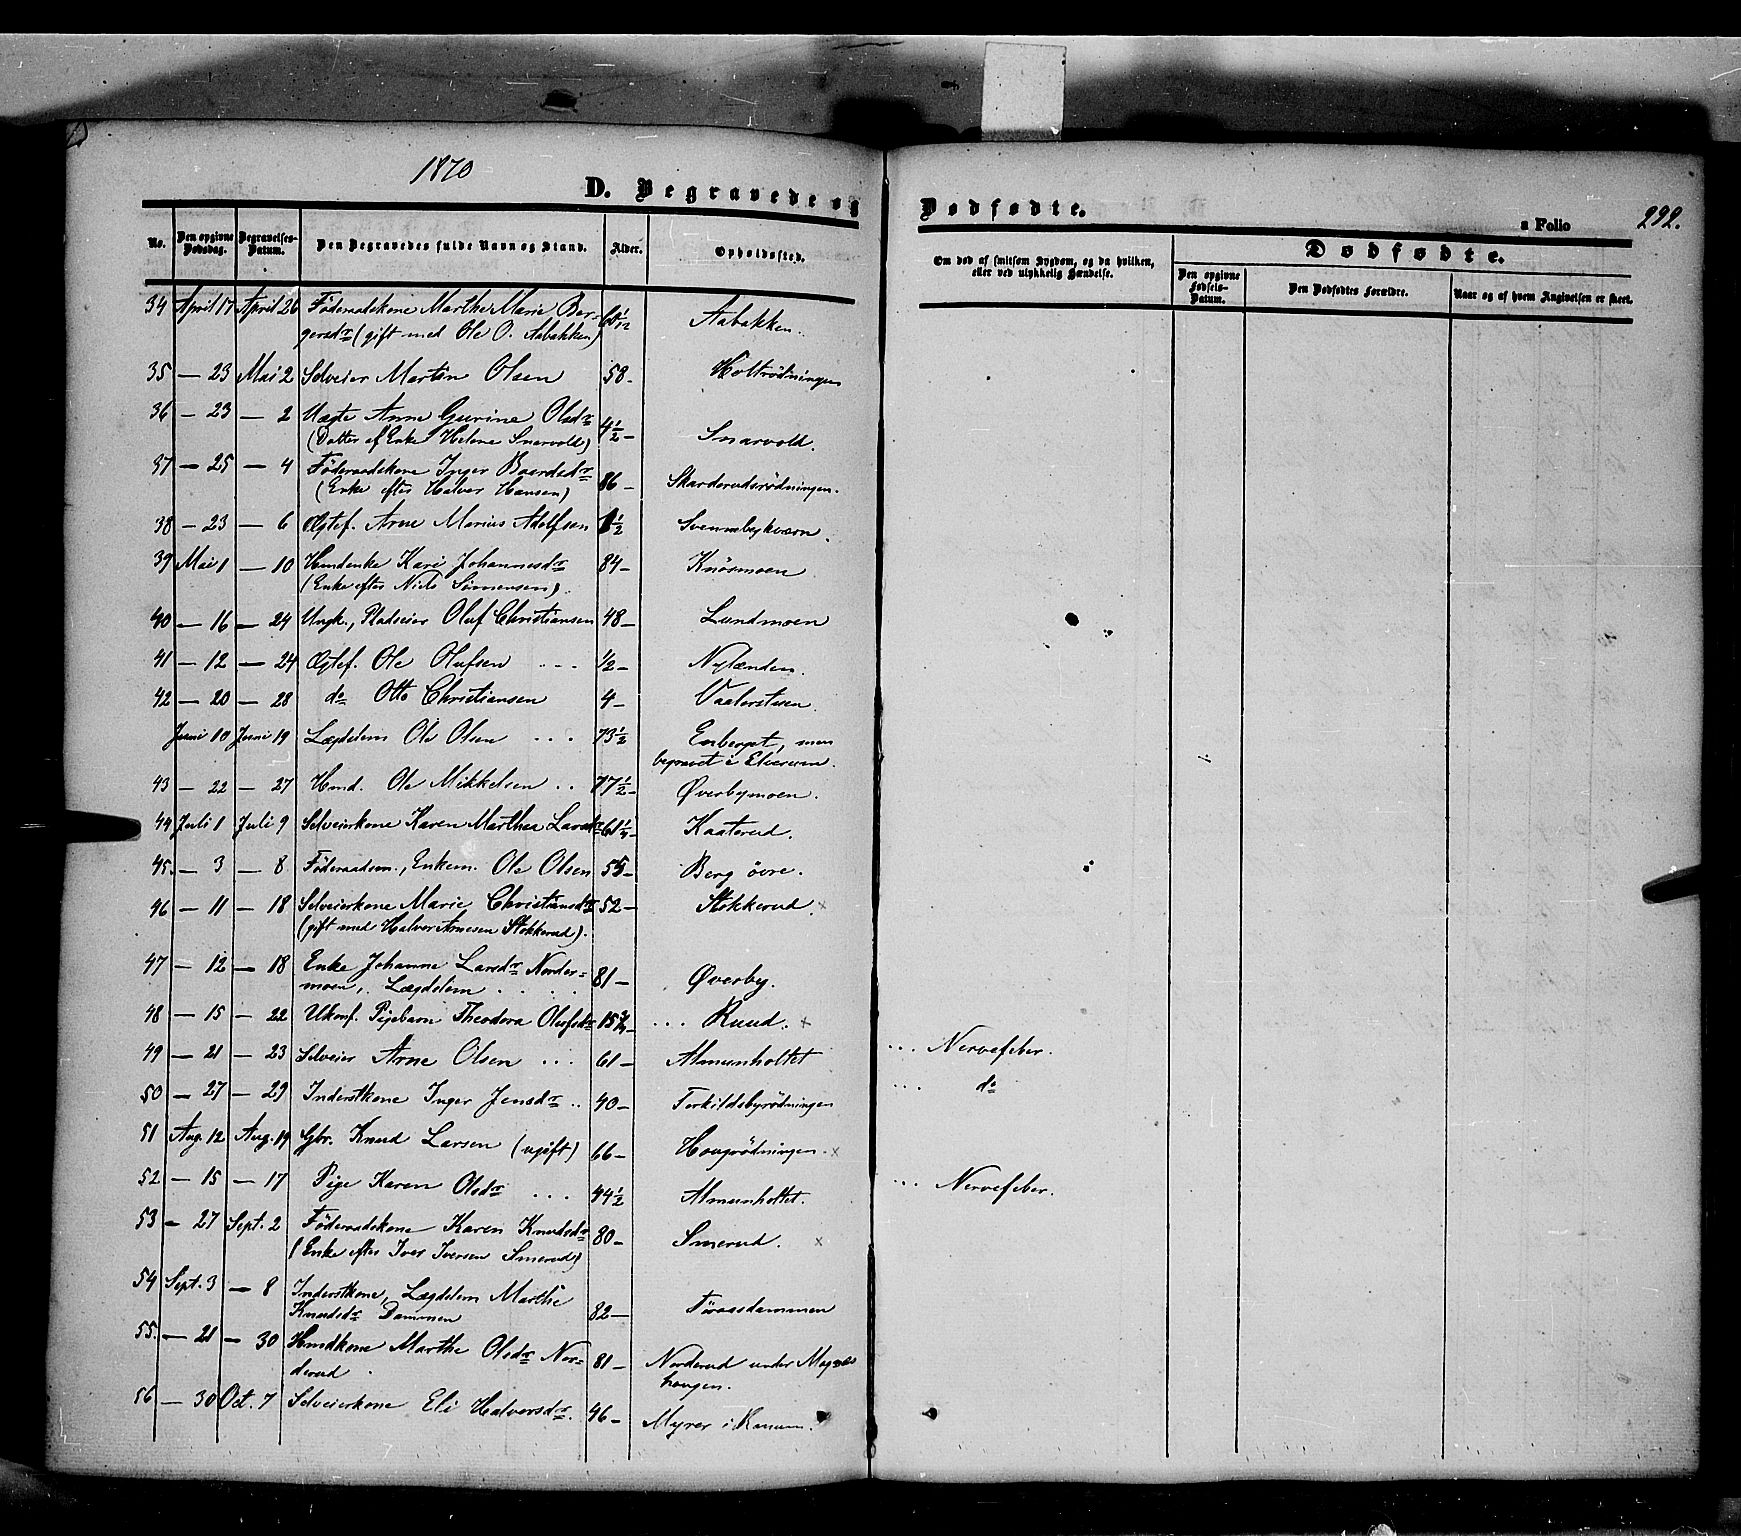 1870
D. Begravede og Dødfødte.
a Folio 292.
No. Den opgivne Dødsdag. Begravelses-Datum. Den Begravedes fulde Navn og Stand. Alder. Opholdssted. Om død af smitsom Sygdom, og da hvilken, eller ved ulykkelig Hændelse. Dødfødte.
Den opgivne Fødsels-Datum. Den Dødfødtes Forældre. Naar og af hvem Angivelsen er skeet.
34 April 17 April 26 Föderaadskone Marthe Marie Ber- 60 1/12 Aabakken.
gersdr (gift med Ole O. Aabakken)
35 — 23 Mai 2 Selveier Martin Olsen 58 - Holtrödningen
36 — 23 — 2 Uægte Anne Gurine Olsdr 4 1/2 - Snarvold.
(Datter af Enke Helene Snarvold)
37 — 25 — 4 Föderaadskone Inger Baardsdr 86 - Skarderudsrödningen.
(Enke efter Halvor Hansen)
38 — 23 — 6 Ægtef. Arne Marius Adolfsen 1/2 Svennebykværn.
39 Mai 1 — 10 Hmdenke Kari Johannesdr 84 - Knösmoen
(Enke efter Niels Simensen).
40 — 16 — 24 Ungk., Pladseier Oluf Christiansen 48 - Lundmoen
41 — 12 — 24 Ægtef. Ole Olufsen ... 1/2 - Nylænden.
42 — 20 — 28 do Otto Christiansen 4 - Vaalerstuen.
Juni 10 Juni 19 Lægdslem Ole Olsen ... 73 1/2 Enberget, men
begravet i Elverum.
43 — 22 — 27 Hmd. Ole Mikkelsen .. 77 1/2 - Øverbymoen.
44 Juli 1 Juli 9 Selveierkone Karen Marthea Larsdr 61 1/4 - Kaaterud.
45. — 3 — 8 Föderaadsm., Enkem. Ole Olsen 55 - Berg övre.
46 — 11 — 18 Selveierkone Marie Christiansdr 52 - Stokkerud. x
(gift med Halvor Arnesen Stokkerud).
47 — 12 — 18 Enke Johanne Larsdr Norder- 81 - Øverby.
moen, Lægdslem . . . .
48 — 15 — 22 Ukonf. Pigebarn Theodora Olufsdr 15 3/4 - ... Ruud. x
49 — 21 — 23 Selveier Arne Olsen ... 61 - Almunholtet ... Nervefeber.
50 — 27 — 29 Inderstkone Inger Jensdr .. 40 - Torkildsbyrödningen ... do
51 Aug. 12 Aug. 19 Gbr. Knud Larsen (ugift) 66 - Hougrödningen. x
52 — 15 — 17 Pige Karen Olsdr ... 44 1/2 Almunholtet. ... Nervefeber.
53 — 27 Sept. 2 Föderaadskone Karen Knudsdr 80 - Smerud. x
(Enke efter Iver Iversen Smerud)
54 Sept. 3 — 8 Inderstkone, Lægdslem Marthe 82 - Föraasdammen
Knudsdr Dammen
55. — 21 — 30 Hmdkone Marthe Olsdr Nor- 81 - Norderud under Magnils
derud. hougen.
56 — 30 Oct. 7 Selveierkone Eli Halvorsdr. 46 - Myrer i Risum.